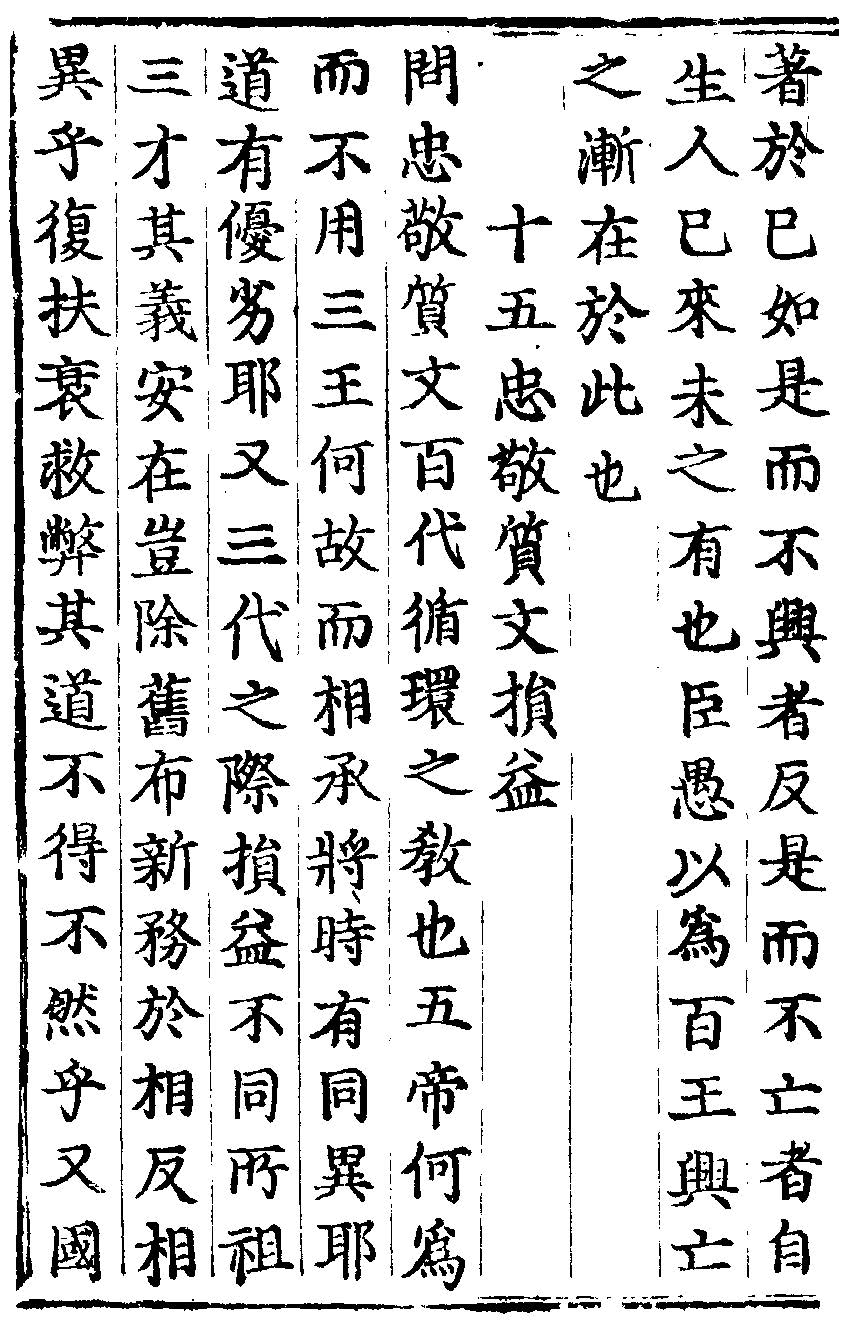 著於已如是而不興者反是而不亡者自
生人已來未之有也臣愚以為百王興亡
之漸在於此也
十五忠敬質文損益
問忠敬質文百代循環之教也五帝何爲
而不用三王何故而相承將時有同異耶
道有優劣耶又三代之際損益不同所祖
三才其義安在豈除舊布新務於相反相
異乎復扶衰救弊其道不得不然乎又國